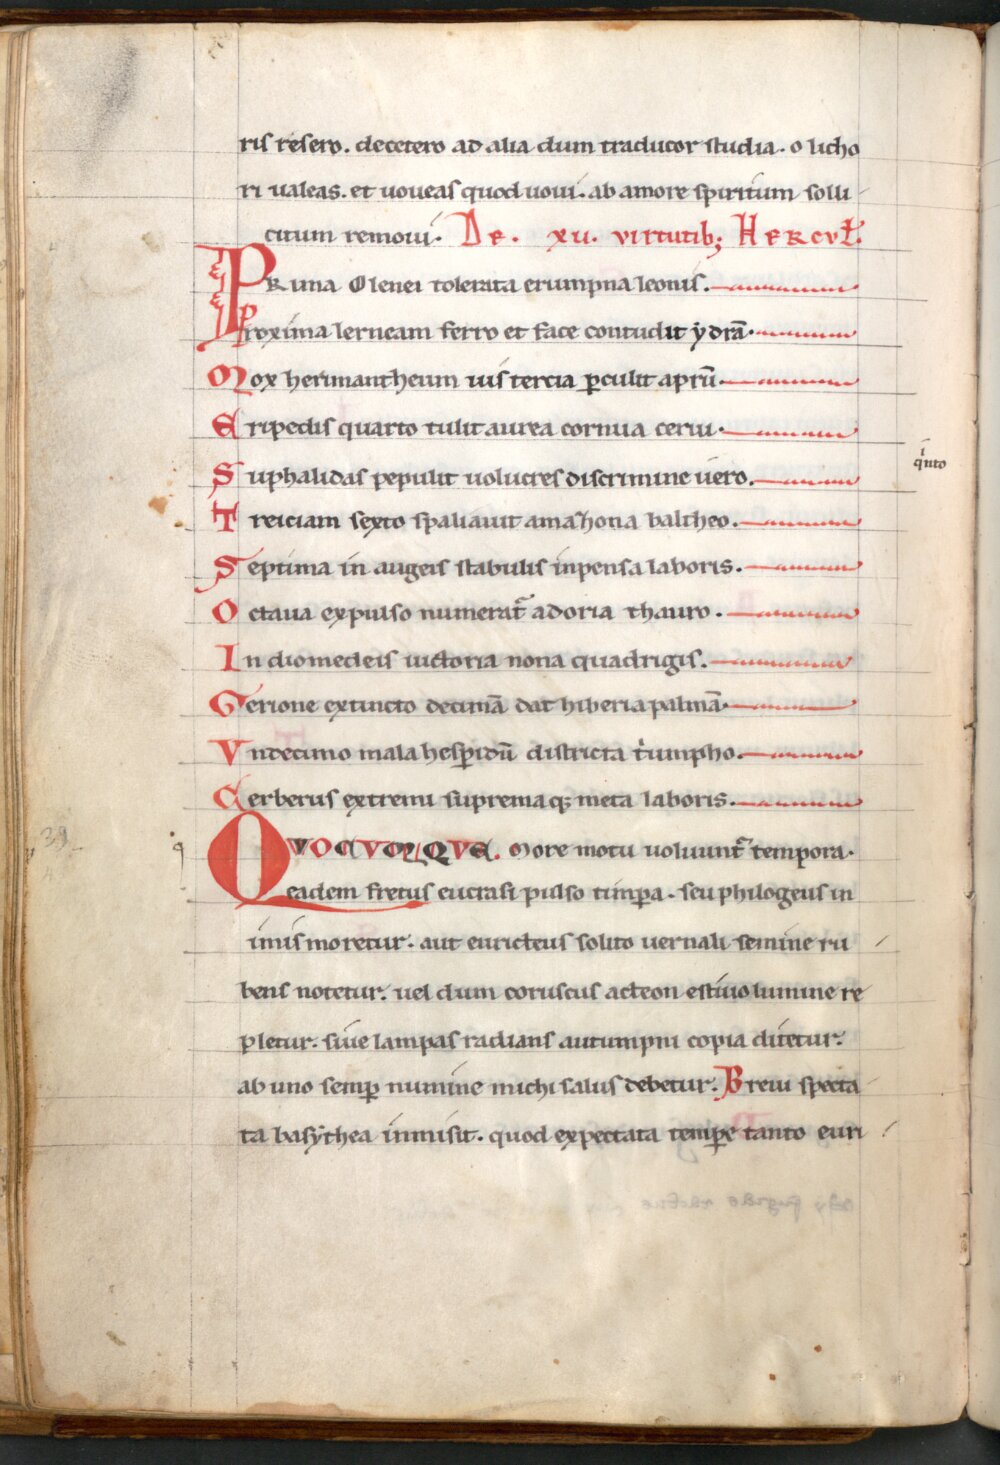 ris resero. decetero ad alia dum traducor studia. o licho
ri ualeas. et uoueas quod uoui. ab amore spirituum solli
citum remoui. De. xii. virtutib; Hercul.
PRuna Olenei tolerata erumpna leonis.
Proxima lerneam ferro et face contudit ẏdrā.
Mox herimantheum uis tercia ꝑculit aprū.
Eripedis quarto tulit aurea cornua cerui.
Stuphalidas pepulit uolucres discrimine uero.
q̍nto
Treiciam sexto spaliauit amazhona baltheo.
Septima in augeis stabulis inpensa laboris.
Octaua expulso numerat᷑ adoria thauro.
In diomedeis uictoria nona quadrigis.
Gerione extincto decimā dat hiberia palmā.
Vndecimo mala hesꝑidū districta t̍umpho.
Cerberus extremi supremaq; meta laboris.
QVOCVMQVE. More motu uoluunt᷑ tempora.
eadem fretus eucrasi pulso timpa. seu philogeus in
imis moretur. aut euricteus solito uernali semine ru
bens notetur. uel dum coruscus acteon estiuo lumine re
pletur. siue lampas radians autumpni copia ditetur.
ab uno semꝑ numine michi salus debetur. Breui specta
ta basythea inmisit. quod expectata tempe tanto euri
39